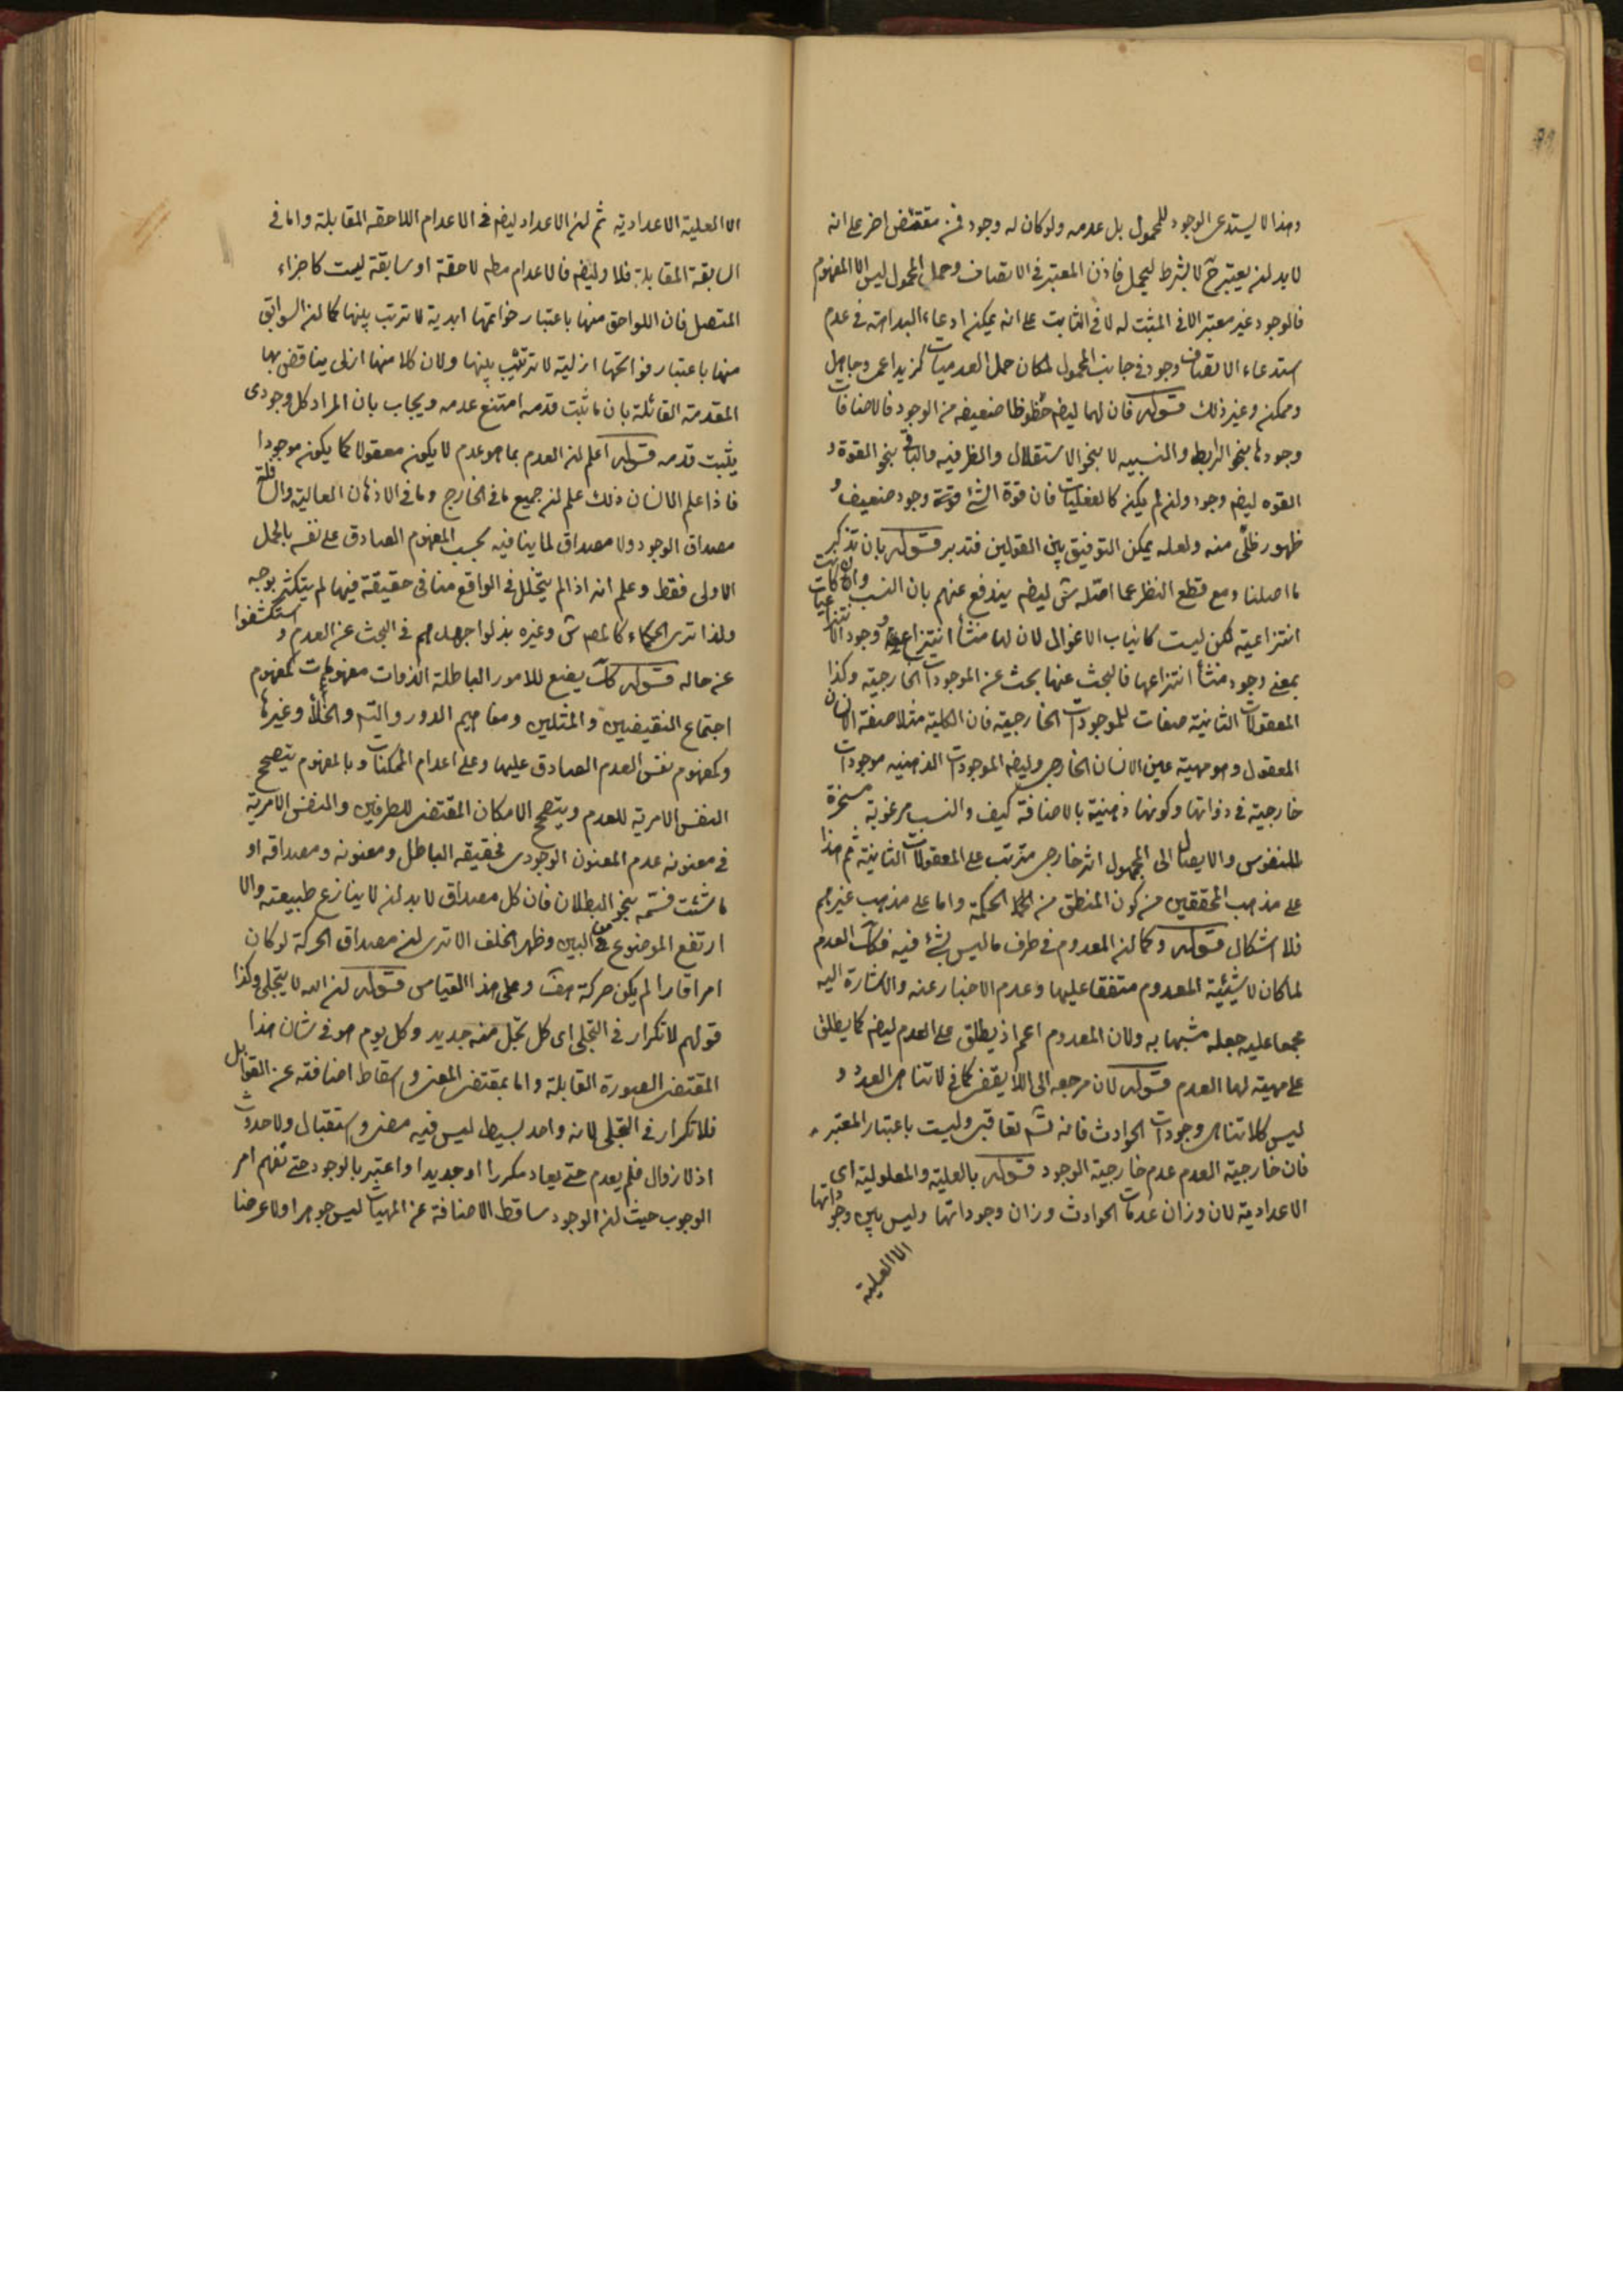 وهذا لا يستدعى الوجود للمحمول بل عدمه ولو كان له وجود فمن مقتض اخر على انه
لا بد لن يعتبر ح لا بشرط ليحمل فاذن المعتبر فى الاتصاف وحمل المحمول ليس الا المفهوم
فالوجود غير معتبر الا فى المثبت له لا فى الثابت على انه يمكن ادعاء البداهة فى عدم
استدعاء الاتصاف وجود فى جانب المحمول لمكان حمل العدميات كزيد اعمى وجاهل
وممكن وغير ذلك قوله فان لها ليضه حظوظا ضعيفه من الوجود فالاضافات
وجودها بنحو الربط والنسبيه لا بنحو الاستقلال والظرفيه والباقى بنحو القوة و
القوه ليضه وجود ولن لم يكن كالفعليات فان قوة الشئ قوته وجود ضعيف و
ظهور ظلى منه ولعله يمكن التوفيق بين القولين فتدبر قوله بان تذكر
ما اصلنا ومع قطع النظر عما اصّله ش ليضه يندفع عنهم بان النسب وان كانت
انتزاعية لكن ليست كانياب الاغوال لان لها منشأ انتزاع ووجود الانتزاعيات
بمعنى وجود منشأ انتزاعها فالبحث عنها بحث عن الموجودات الخارجية وكذا
المعقولات الثانية صفات للموجودات الخارجية فان الكلية مثلا صفة الانسان
المعقول وهو مهية عين الانسان الخارجى وليضه الموجودات الذهنيه موجودات
خارجية فى ذواتها وكونها ذهنية بالاضافة كيف والنسب مرغوبة مسخرة
للنفوس والايصال الى المجهول اثر خارجى مترتب على المعقولات الثانية ثم هذا
على مذهب المحققين من كون المنطق من الحكمة واما على مذهب غيرهم
فلا اشكال قوله وكما لن المعدوم فى طرف ما ليس بشئ فيه فكك العدم
لما كان لا شيئية المعدوم متفقا عليها وعدم الاخبار عنه والاشارة اليه
مجمعا عليه جعله مشبها به ولان المعدوم اعم اذ يطلق على العدم ليضه كما يطلق
على مهية لها العدم قوله لان مرجعه الى اللايقفى كما فى لا تناهى العدد و
ليس كلا تناهى وجودات الحوادث فانه لشم تعاقبى وليست باعتبار المعتبر
فان خارجية العدم عدم خارجية الوجود قوله بالعلية والمعلولية اى
الاعدادية لان وزان عدمات الحوادث وزان وجوداتها وليس بين وجوداتها
الا العلية
الا العلية الاعدادية ثم لن الاعداد ليضه فى الاعدام اللاحقه المقابلة واما فى
السابقة المقابلة فلا وليضه فالاعدام مطه لاحقة او سابقة ليست كاجزاء
المتصل فان اللواحق منها باعتبار خواتمها ابدية لا ترتب بينها كما لن السوابق
منها باعتبار فواتحها ازلية لا ترتيب بينها ولان كلا منها ازلى يناقض بها
المقدمة القائلة بان ما ثبت قدمه امتنع عدمه ويجاب بان المراد كل وجودى
يثبت قدمه قوله اعلم لن العدم بما هو عدم لا يكون معقولا كما يكون موجودا
فاذا علم الانسان ذلك علم لن جميع ما فى الخارج وما فى الاذهان العالية والسافلة
مصداق الوجود ولا مصداق لما ينافيه بحسب المفهوم الصادق على نفسه بالحمل
الاولى فقط وعلم انه اذا لم يتخلل فى الواقع مناف حقيقة فيها لم يتكثر بوجه
ولذا ترى الحكماء كالمص ش وغيره بذلوا جهدهم فى البحث عن العدم و استكشفوا
عن حاله قوله كك يضع للامور الباطلة الذوات مفهومات كمفهوم
اجتماع النقيضين والمثلين ومفاهيم الدور والتس والخلأ وغيرها
وكمفهوم نفس العدم الصادق عليها وعلى اعدام الممكنات وبالمفهوم يتصحح
النفس الامرية للعدم ويتصحح الامكان المقتضى للطرفين والنفس الامرية
فى معنونه عدم المعنون الوجودى فحقيقه الباطل ومعنونه ومصداقه او
ما شئت فسمه بنحو البطلان فان كل مصداق لا بد لن لا ينازع طبيعته والا
ارتفع الموضوع من البين وظهر الخلف الا ترى لن مصداق الحركة لو كان
امرا قارا لم يكن حركة هف وعلى هذا القياس قوله لن الله لا يتجلى وكذا
قولهم لا تكرار فى التجلى اى كل تجل منه جديد وكل يوم هو فى شان هذا
المقتضى الصورة القابلة واما بمقتضى المعنى واسقاط اضافته عن القوابل
فلا تكرار فى التجلى لانه واحد بسيط ليس فيه مضى واستقبال ولا حدوث
اذ لا زوال فلم يعدم حتى يعاد مكررا او جديدا واعتبر بالوجود حتى تفهم امر
الوجوب حيث لن الوجود ساقط الاضافة عن المهيات ليس جوهرا ولا عرضا